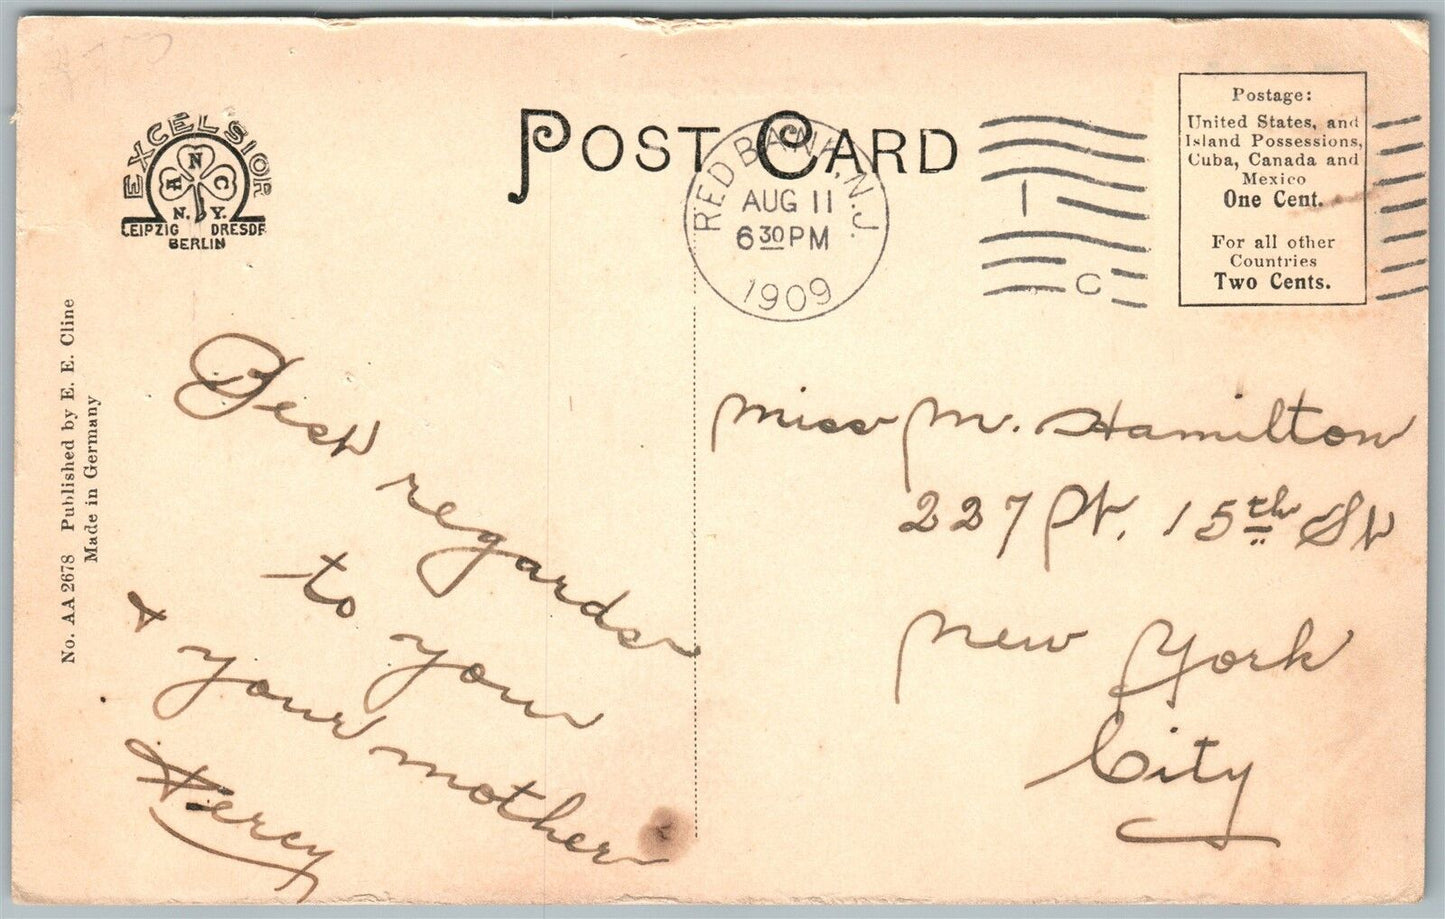 EXCELSIOR
A N C
N. Y.
LEIPZIG DRESDE
BERLIN
POST CARD
RED BANK, N.J.
AUG 11
6 30 PM
1909
1
C
Postage:
United States, and
Island Possessions,
Cuba, Canada and
Mexico
One Cent.
For all other
Countries
Two Cents.
No. AA 2678 Published by E. E. Cline
Made in Germany
Best regards
to you
& your mother
Miss M. Hamilton
227 15th St
New York
City